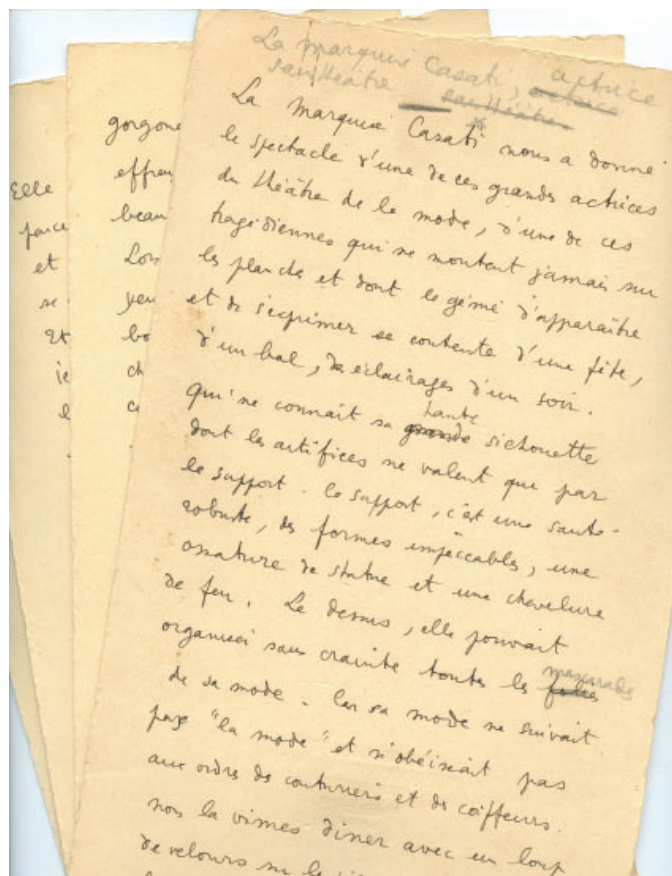 La marquise Casati, actrice
sans théâtre
La marquise Casati nous a donné
le spectacle d'une de ces grandes actrices
du théâtre de la mode, d'une de ces
tragédiennes qui ne montent jamais sur
les planches et dont le génie d'apparaître
et de s'exprimer se contente d'une fête,
d'un bal, des éclairages d'un soir.
qui ne connait sa haute
grande silhouette
dont les artifices ne valent que par
le support. Ce support, c'est une santé
robuste, des formes impeccables, une
ossature de statue et une chevelure
de feu. Là dessus, elle pouvait
organiser sans crainte toutes les mascarades
de sa mode. Car sa mode ne suivait
pas "la mode" et n'obéissait pas
aux ordres des couturiers et des coiffeurs.
nous la vîmes dîner avec un loup
de velours sur le
gorgone
effray
beau
Lors
yeu
bo
ch
Elle
parce
et
se
Et
je